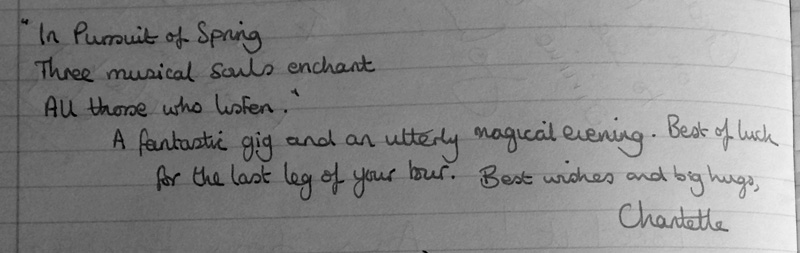 "In Pursuit of Spring
Three musical souls enchant
All those who listen."
A fantastic gig and an utterly magical evening. Best of luck
for the last leg of your tour. Best wishes and big hugs,
Chantelle